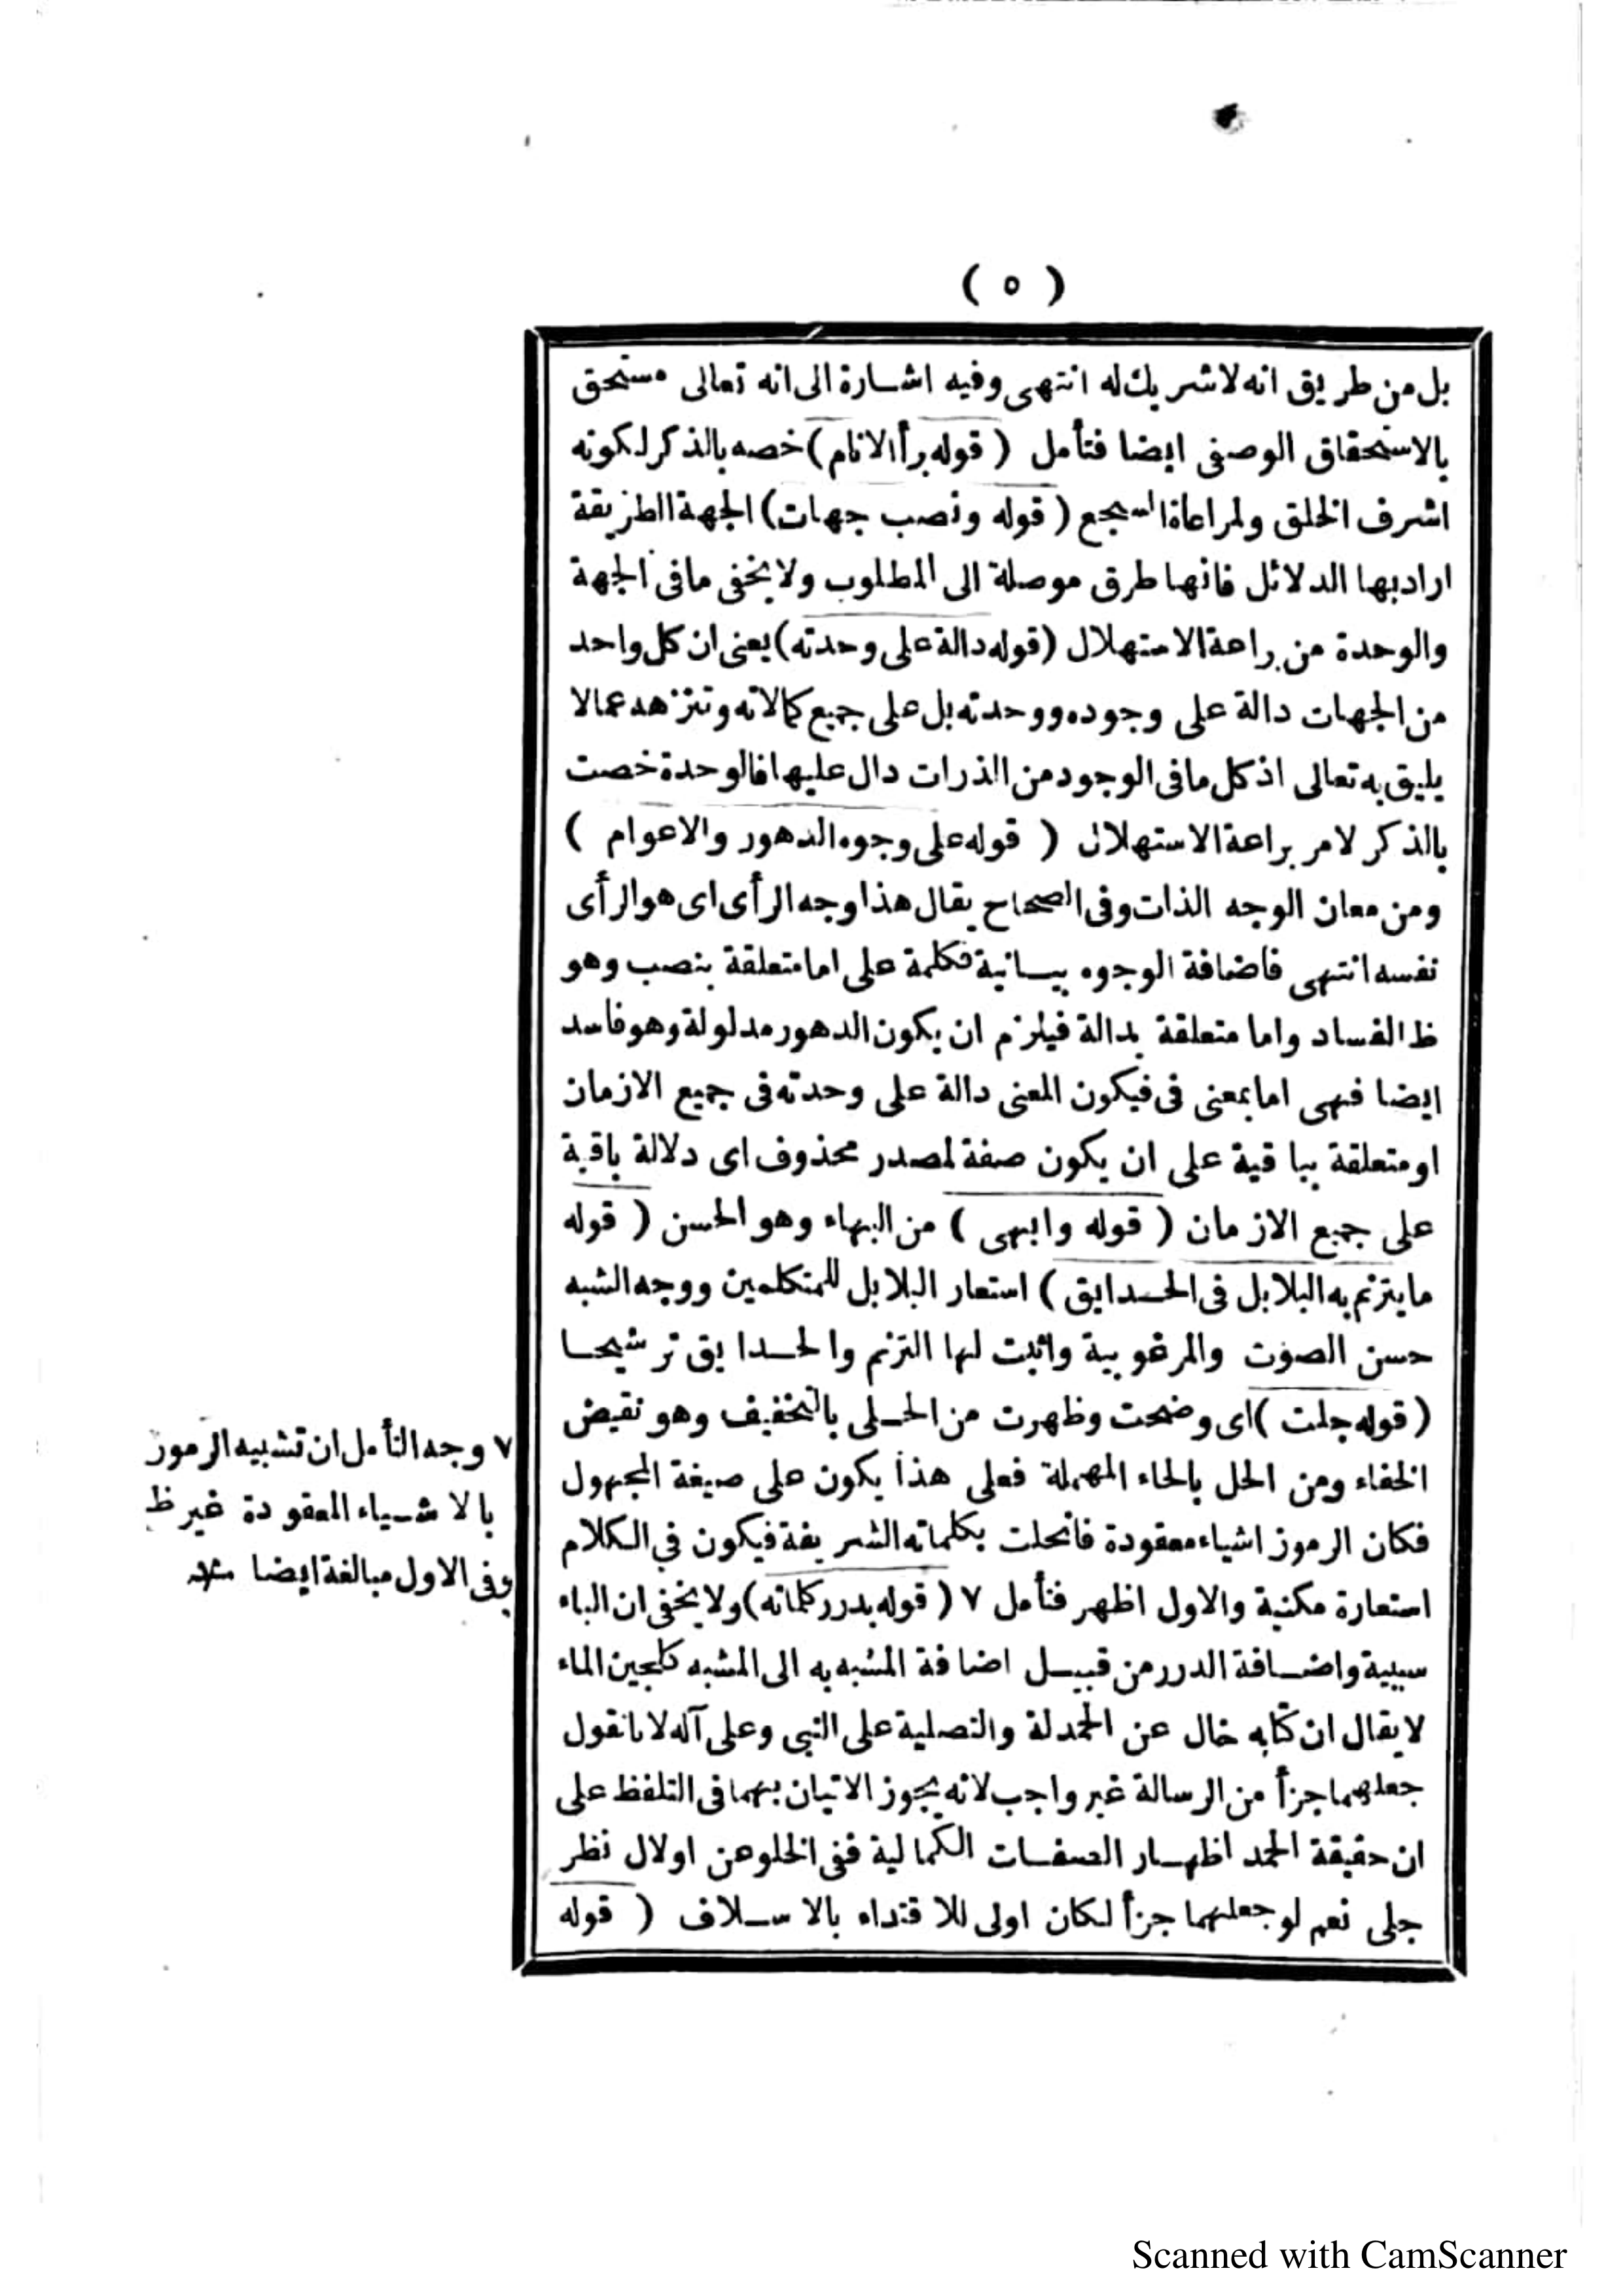 ( ٥ )
بل من طريق انه لاشريك له انتهى وفيه اشارة الى انه تعالى مستحق
بالاستحقاق الوصفى ايضا فتأمل ( قوله برأ الانام ) خصه بالذكر لكونه
اشرف الخلق ولمراعاة السجع ( قوله ونصب جهات ) الجهة الطريقة
اراد بها الدلائل فانها طرق موصلة الى المطلوب ولا يخفى مافى الجهة
والوحدة من براعة الاستهلال ( قوله دالة على وحدته ) يعنى ان كل واحد
من الجهات دالة على وجوده ووحدته بل على جميع كمالاته وتنزهه عمالا
يليق به تعالى اذ كل مافى الوجود من الذرات دال عليها فالوحدة خصت
بالذكر لامر براعة الاستهلال ( قوله على وجوه الدهور والاعوام )
ومن معان الوجه الذات وفى الصحاح يقال هذا وجه الرأى اى هو الرأى
نفسه انتهى فاضافة الوجوه بيانية فكلمة على اما متعلقة بنصب وهو
ظ الفساد واما متعلقة بدالة فيلزم ان يكون الدهور مدلولة وهو فاسد
ايضا فهى اما بمعنى فى فيكون المعنى دالة على وحدته فى جميع الازمان
او متعلقة بباقية على ان يكون صفة لمصدر محذوف اى دلالة باقية
على جميع الازمان ( قوله وابهى ) من البهاء وهو الحسن ( قوله
ما يترنم به البلابل فى الحدايق ) استعار البلابل للمتكلمين ووجه الشبه
حسن الصوت والمرغوبية واثبت لها الترنم والحدايق ترشيحا
( قوله جلت ) اى وضحت وظهرت من الجلى بالتخفيف وهو نقيض
الخفاء ومن الحل بالحاء المهملة فعلى هذا يكون على صيغة المجهول
فكان الرموز اشياء معقودة فانحلت بكلماته الشريفة فيكون في الكلام
استعارة مكنية والاول اظهر فتأمل ٧ ( قوله بدرر كلماته ) ولا يخفى ان الباء
سببية واضافة الدرر من قبيل اضافة المشبه به الى المشبه كلجين الماء
لا يقال ان كتابه خال عن الحمدلة والتصلية على النبى وعلى آله لانا نقول
جعلهما جزأ من الرسالة غير واجب لانه يجوز الاتيان بهما فى التلفظ على
ان حقيقة الحمد اظهار الصفات الكمالية ففى الخلو عن اولال نظر
جلى نعم لو جعلهما جزأ لكان اولى للاقتداء بالاسلاف ( قوله
٧ وجه التأمل ان تشبيه الرموز
بالاشياء المعقودة غير ظ
وفى الاول مبالغة ايضا
Scanned with CamScanner